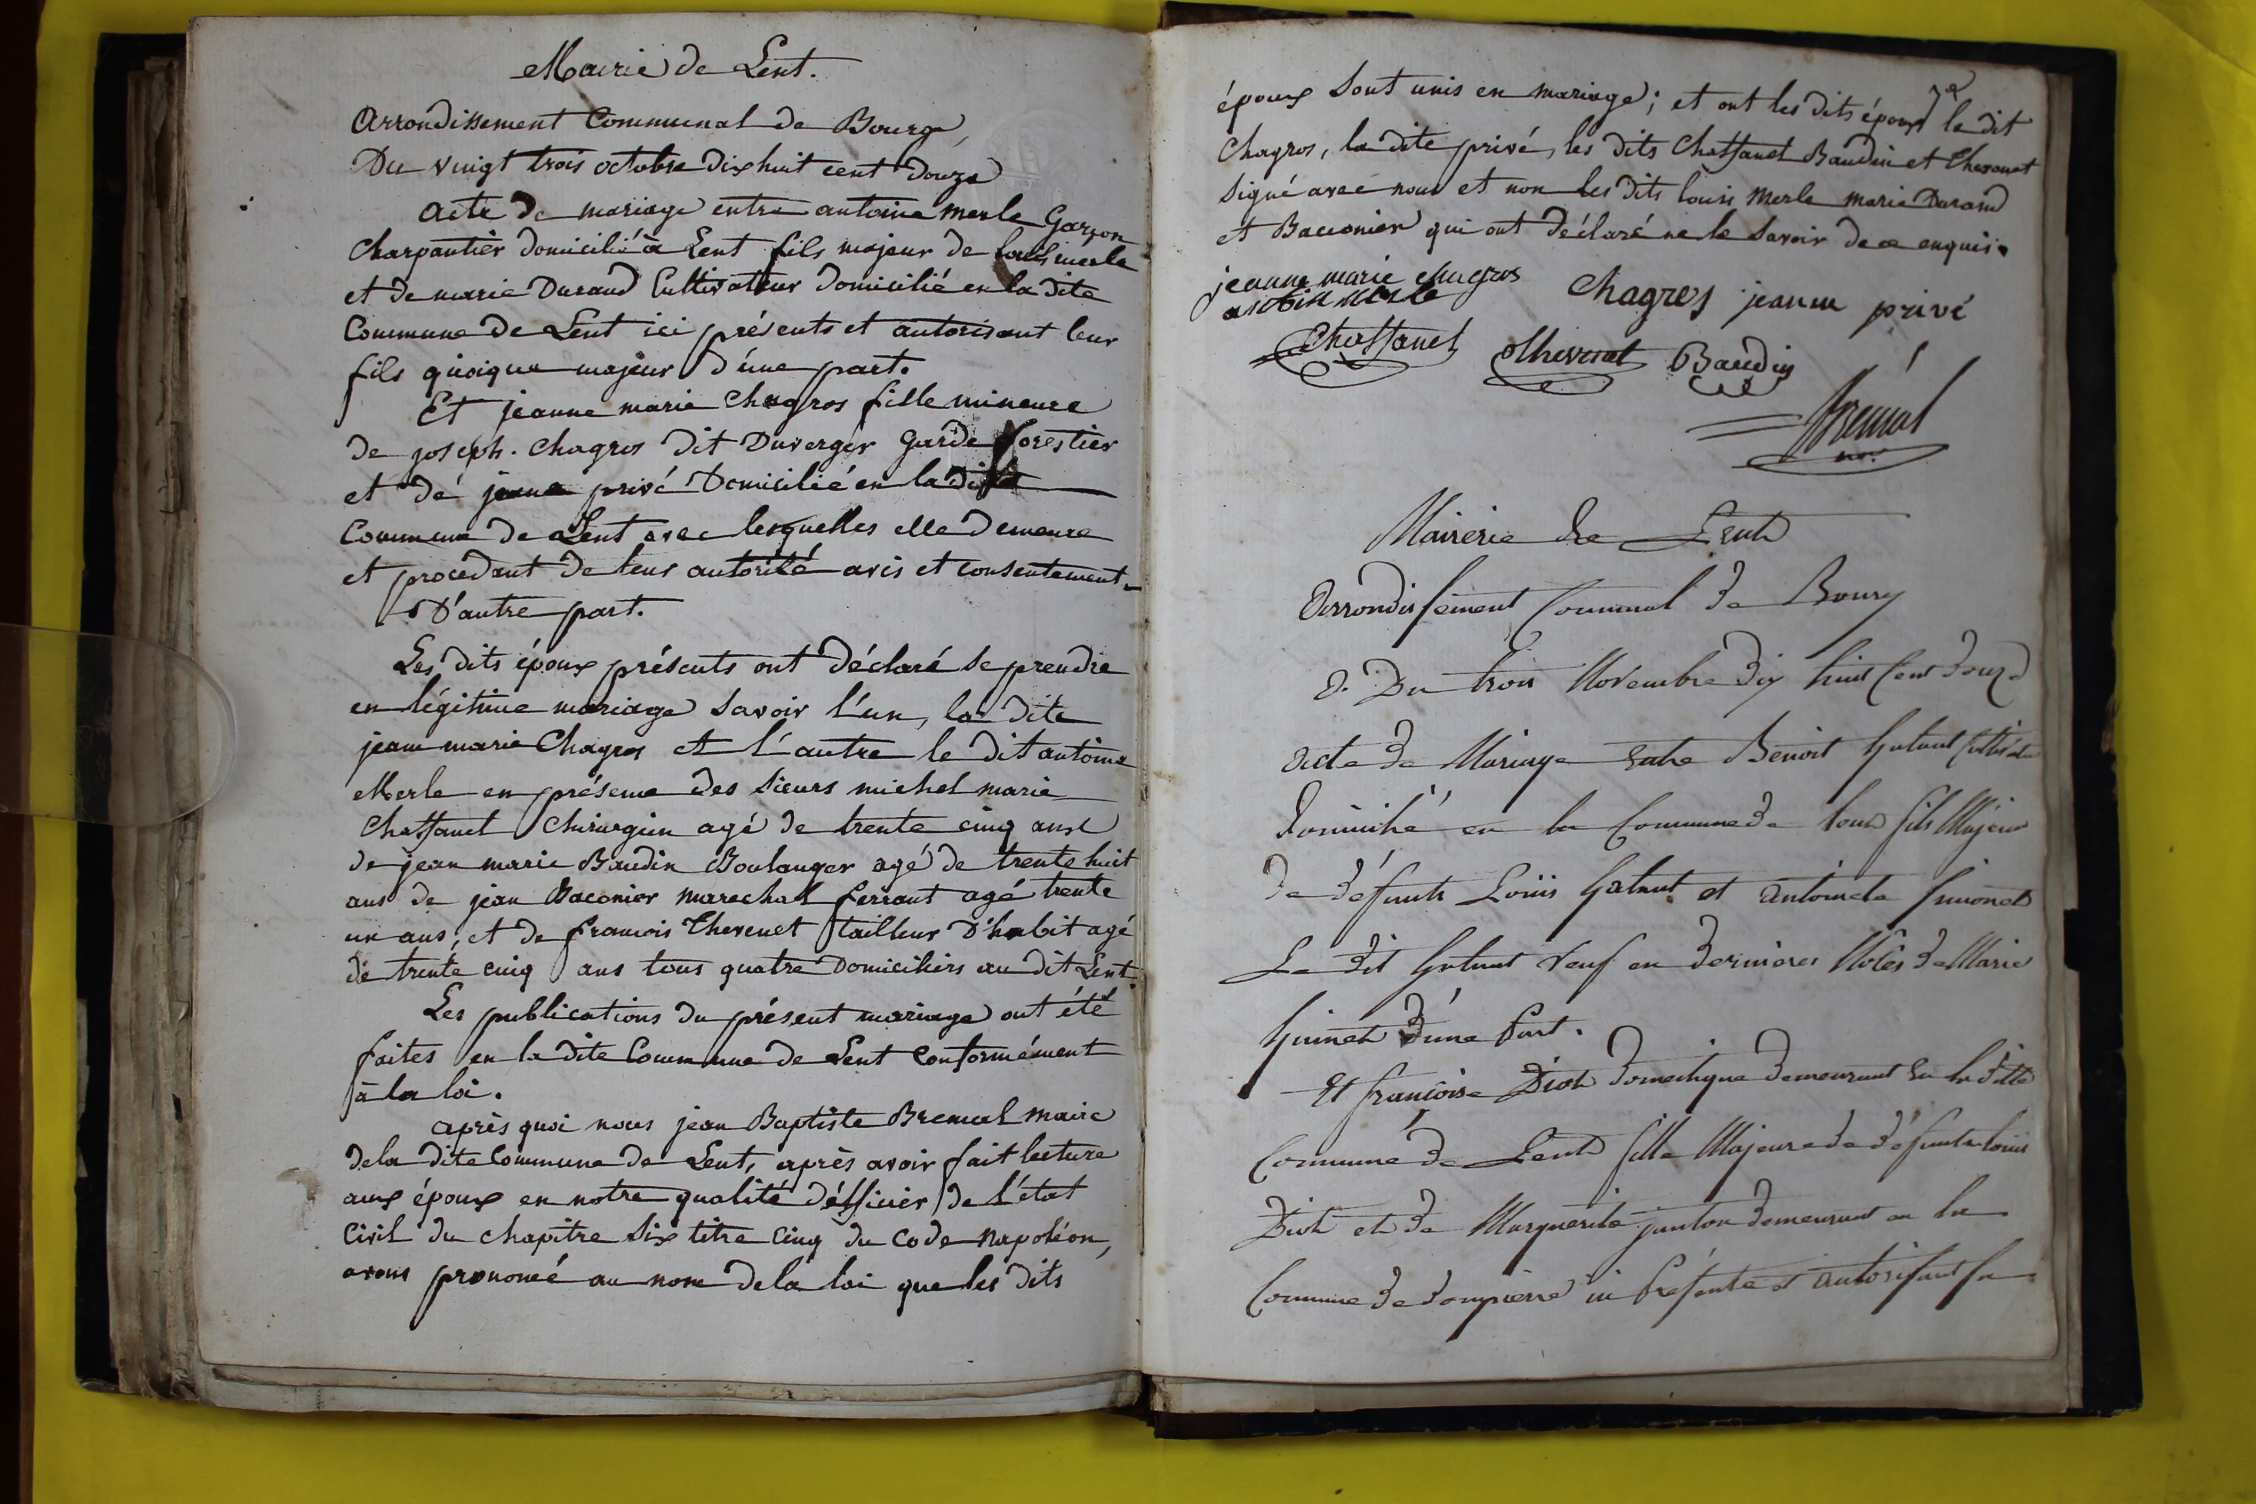 Mairie de Lent.
Arrondissement Communal de Bourg
Du vingt trois octobre dix huit cent douze
acte de mariage entre antoine merle Garçon
Charpantier domicilié à Lent fils majeur de louis merle
et de marie Durand Cultivateur domicilié en la dite
Commune de Lent ici présents et autorisant leur
fils quoique majeur d'une part.
Et jeanne marie Chagros fille mineure
de joseph. Chagros dit Duverger Garde forestier
et de jeanne privé Domicilié en la dite
Commune de Lent avec lesquelles elle demeure
et procedant de leur autorité avis et consentement
D'autre part.
Les dits époux présents ont déclaré se prendre
en légitime mariage savoir l'un, la dite
jeanne marie Chagros et l'autre le dit antoine
Merle en présence des sieurs michel marie
Chassanet Chirurgien agé de trente cinq ans
de jean marie Baudin Boulanger agé de trente huit
ans de jean Baconier marechal ferrant agé trente
un ans, et de francois Thevenet tailleur D'habit agé
de trente cinq ans tous quatre Domiciliers au dit Lent.
Les publications du présent mariage ont été
faites en la dite Commune de Lent conformément
à la loi.
après quoi nous jean Baptiste maire
dela dite Commune de Lent, après avoir fait lecture
aux époux en notre qualité d'officier de l'état
Civil du chapitre six titre cinq du code Napoléon,
avons prononcé au nom dela loi que les dits
époux sont unis en mariage; et ont les dits époux le dit
Chagros, la dite privé, les dits Chassanet Baudin et Thevenet
signé avec nous et non les dits louis Merle marie Durand
et Baconier qui ont déclaré ne le savoir de ce enquis.
jeanne marie chagros
Chagros jeanne privé
Chassanet Thevenet Baudin
Mairerie de Lent
Arrondissement Communal de Bourg
Du trois Novembre dix huit Cent douze
Acte de Mariage entre Benoit
domicilié en la Commune de Lent fils Majeur
de défunts Louis et antoinete
Le dit veuf en dernieres Nôces de Marie
d'une Part.
Et françoise Diot domestique demeurant en la ditte
Commune de Lent fille Majeure de défunt louis
Diot et de Marguerite demeurant en la
Commune de dompierre ici Présente et autorisant sa